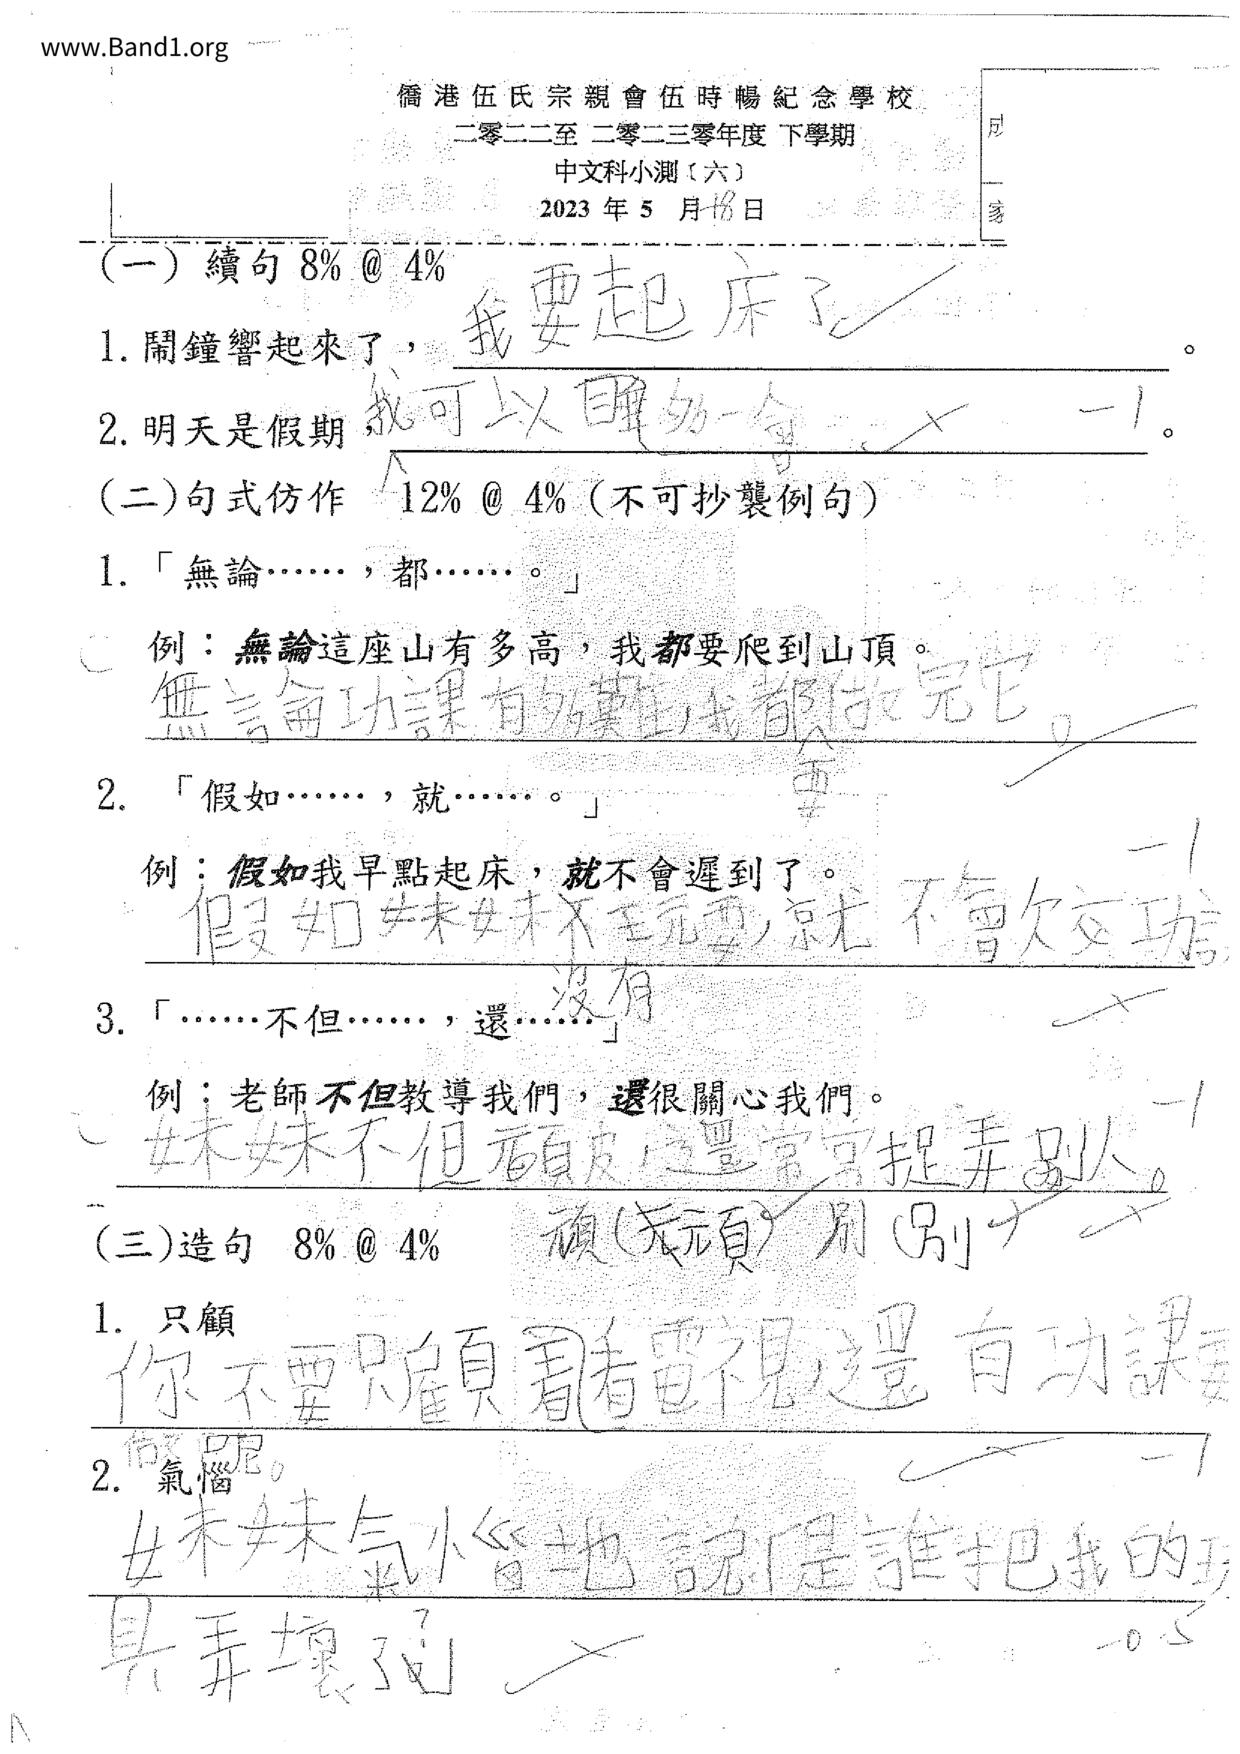 www.Band1.org
僑港伍氏宗親會伍時暢紀念學校
二零二二至 二零二三零年度 下學期
中文科小測(六)
2023 年 5 月 18 日
成
家
(一) 續句 8% @ 4%
1. 鬧鐘響起來了,我要起床了。
2. 明天是假期,我可以睡多一會。 -1
(二)句式仿作 12% @ 4% (不可抄襲例句)
1. 「無論……,都……。」
例:無論這座山有多高,我都要爬到山頂。
無論功課有多難,我都做完它。
要
2. 「假如……,就……。」
例:假如我早點起床,就不會遲到了。 -1
假如妹妹不玩耍,就不會欠交功
沒有
3. 「……不但……,還……」
例:老師不但教導我們,還很關心我們。 -1
妹妹不但頑皮,還常常捉弄別人。
頑(頑) 別(別)
(三)造句 8% @ 4%
1. 只顧
你不要只顧看電視,還有功課要
做呢。 -1
2. 氣惱
妹妹氣惱地說:「是誰把我的玩
具弄壞了?」 -0.5